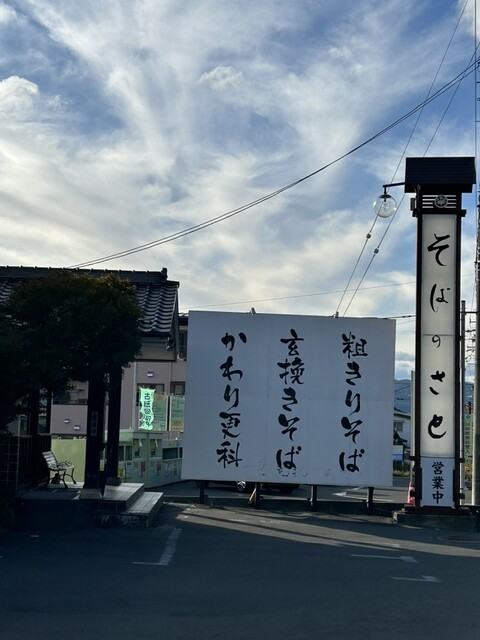 粗きりそば
玄挽きそば
かわり更科
そばのさと
営業中
古紙回収